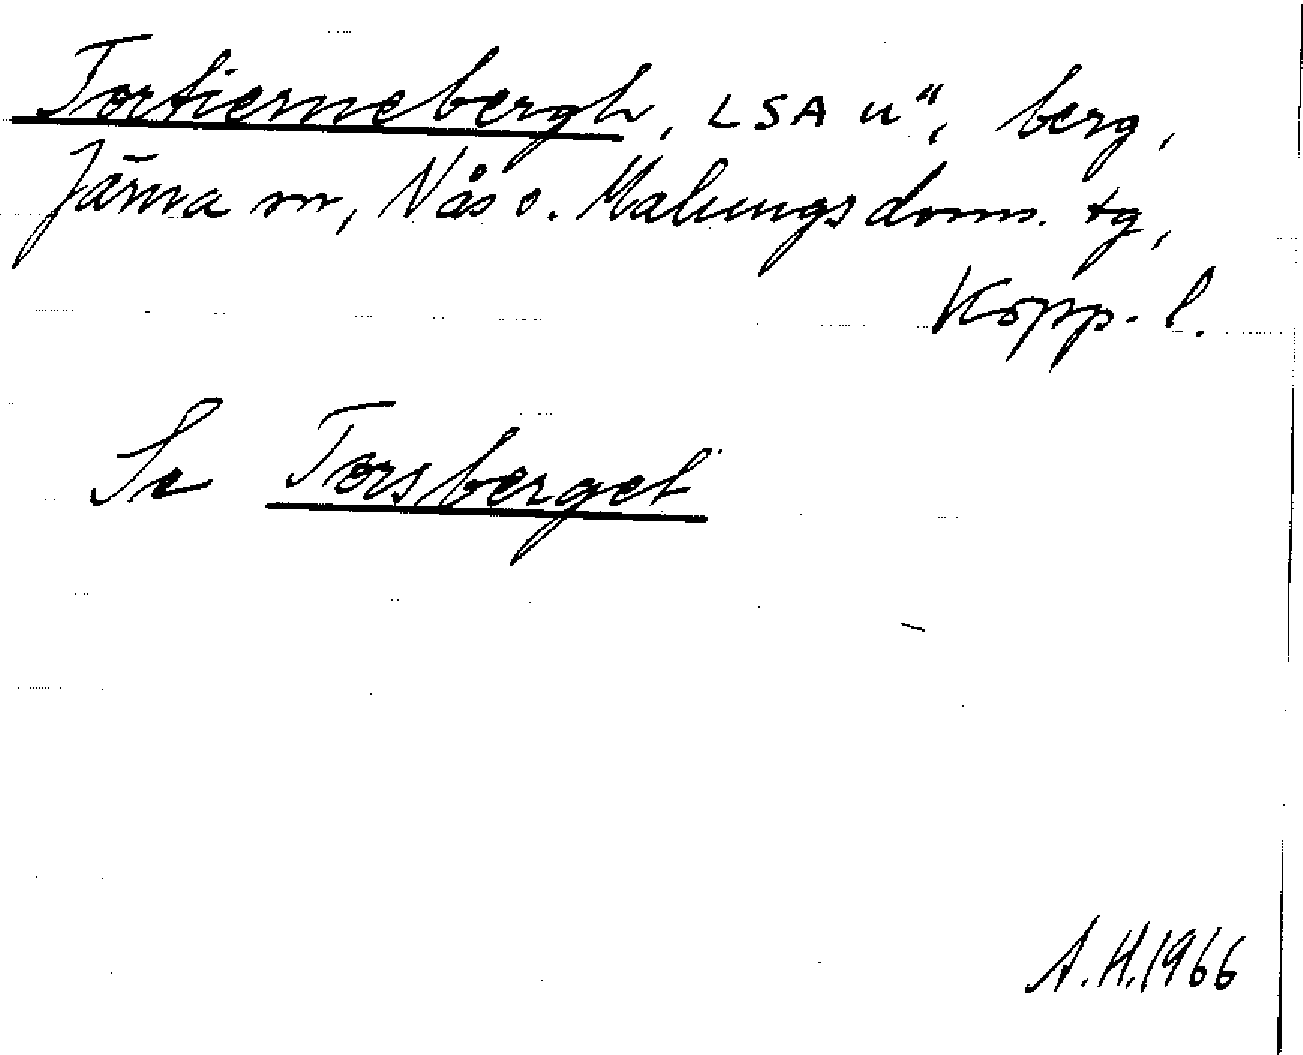 Tortiernebergh, LSA u", berg,
Järna sn, Nås o. Malungs doms. tg,
Kopp. l.
Se Torsberget
A.H.1966